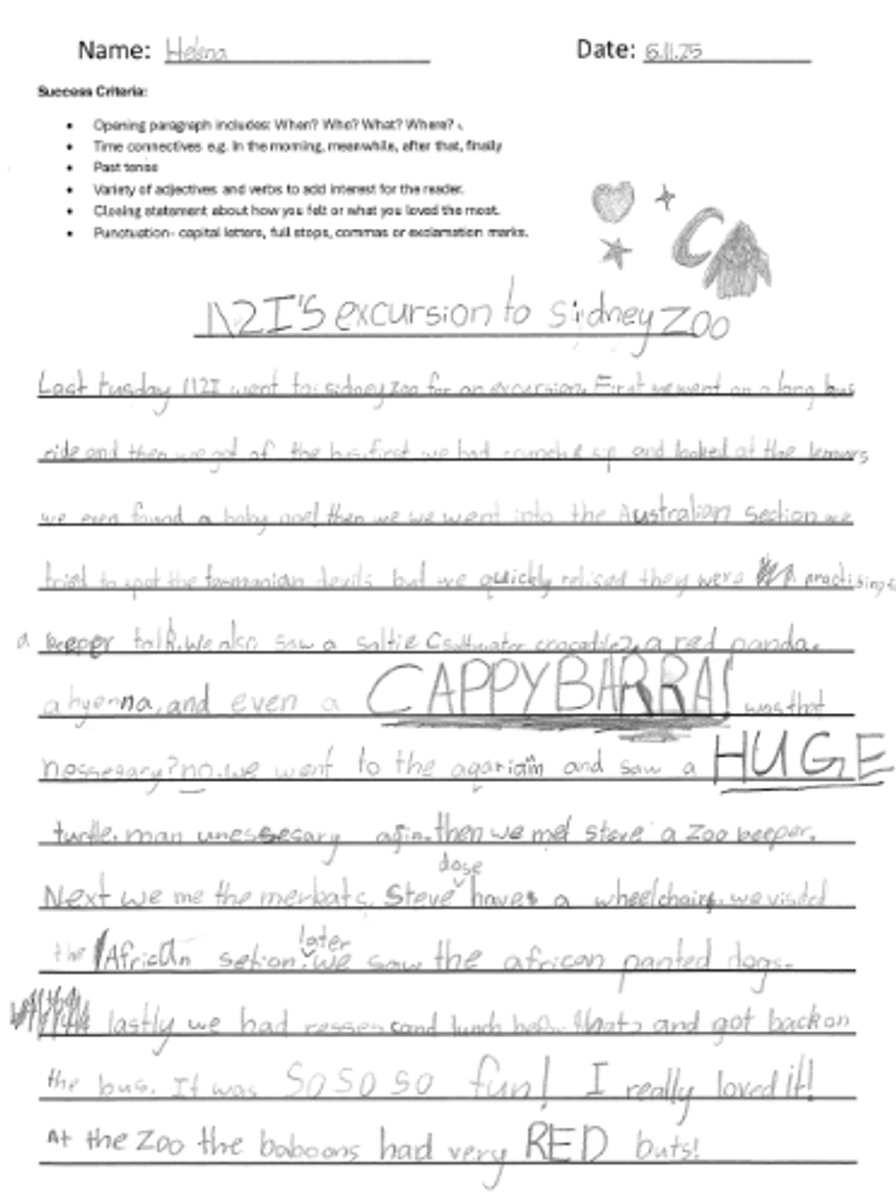 Name: Helena
Date: 6.11.25
Success Criteria:
• Opening paragraph includes: When? Who? What? Where?
• Time connectives e.g. In the morning, meanwhile, after that, finally
• Past tense
• Variety of adjectives and verbs to add interest for the reader.
• Closing statement about how you felt or what you loved the most.
• Punctuation- capital letters, full stops, commas or exclamation marks.
1\2I'S excursion to Sidney Zoo
Last tusday 1\2I went to sidney Zoo for an excursion. First we went on a long bus
ride and then we got of the bus. first we had crunch & sip and looked at the lemurs
we even found a baby one! then we we went into the Australian section we
tried to spot the tasmanian devils but we quickly relised they were practising
a keeper talk. we also saw a saltie (saltwater crocadile), a red panda,
a hyenna, and even a CAPPYBARRA! was that
nessesary? no. we went to the and saw a HUGE
turtle. man unessesary agin. then we met steve a zoo keeper.
Next we me the merkats. Steve dose have a wheelchair. we visited
the African setion. later we saw the african panted dogs.
lastly we had resses and lunch and got back on
the bus. It was So So so fun! I really loved it!
At the Zoo the baboons had very RED buts!